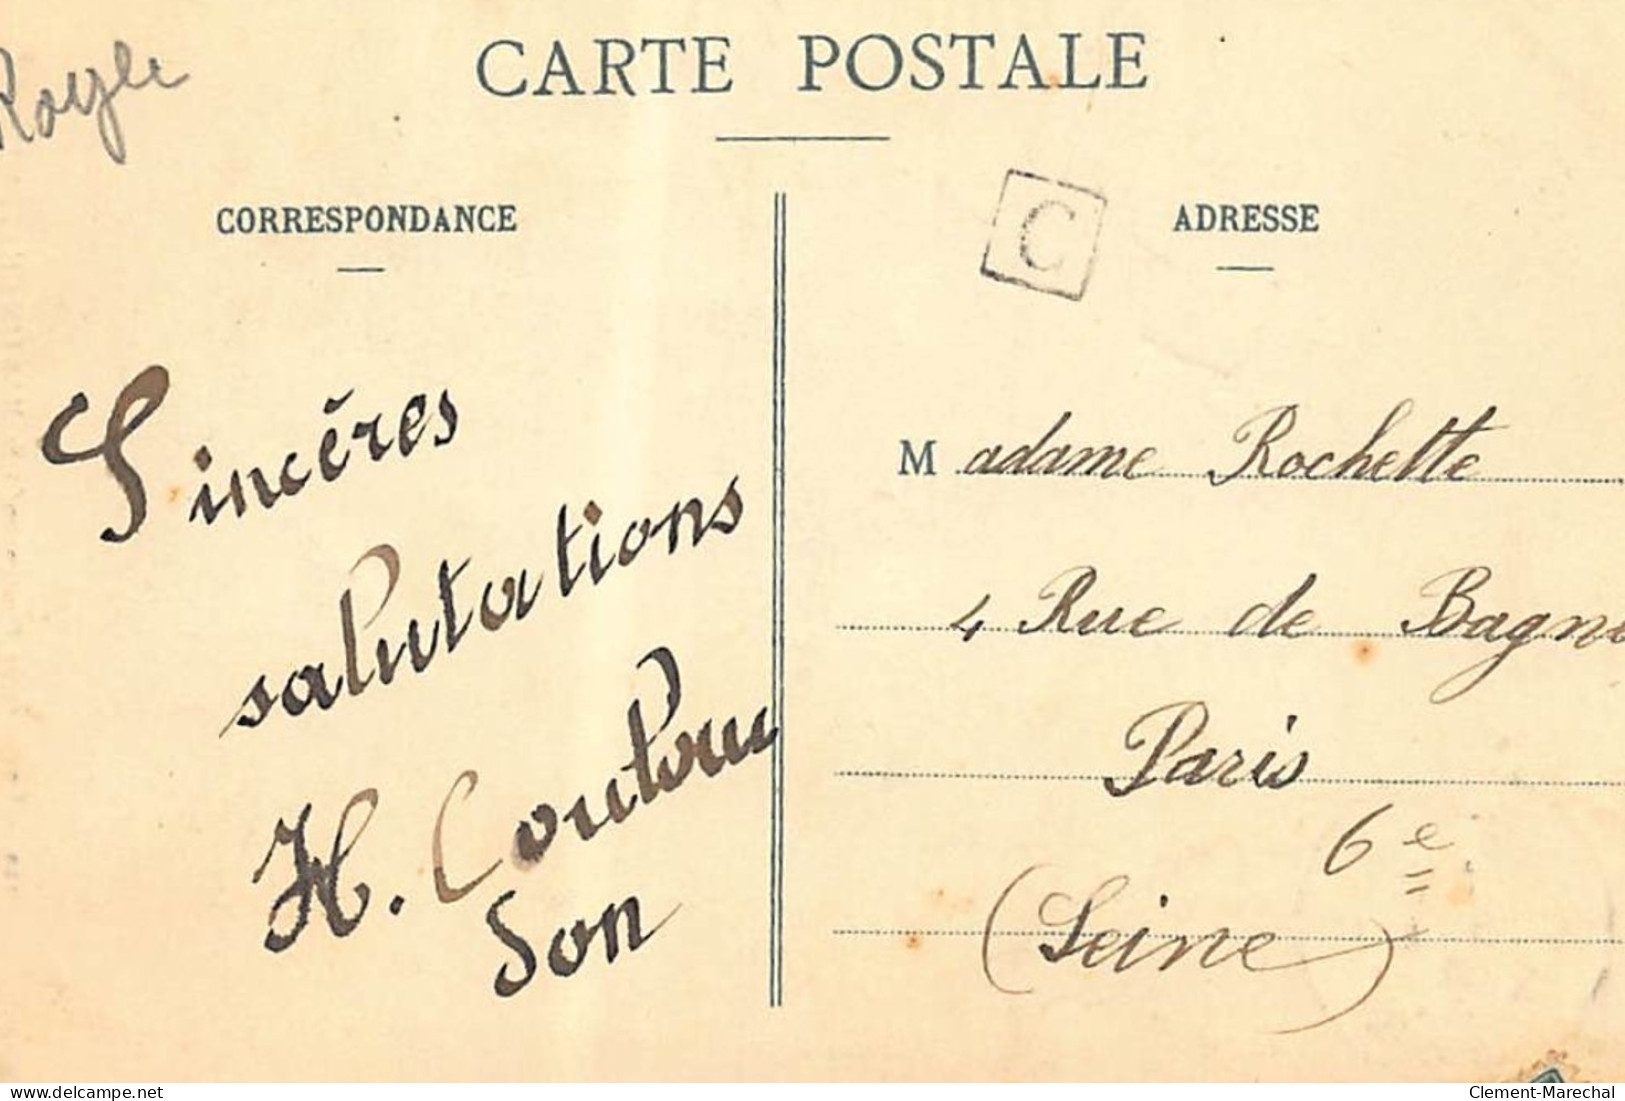 CARTE POSTALE
CORRESPONDANCE
C
ADRESSE
Sincères
salutations
H.
Son
Madame Rochette
4 Rue de Bagne
Paris
6e
(Seine)
Clement-Marechal